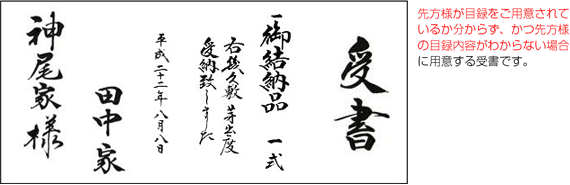 受書
一御結納品 一式
右幾久敷芽出度
受納致しました
平成二十二年八月八日
田中家
神尾家様
先方様が目録をご用意されて
いるか分からず、かつ先方様
の目録内容がわからない場合
に用意する受書です。